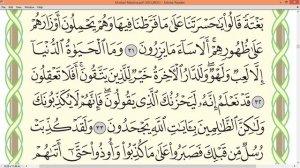 Mushaf Madina.pdf (SECURED) - Adobe Reader
بَغْتَةً قَالُوا۟ يَٰحَسْرَتَنَا عَلَىٰ مَا فَرَّطْنَا فِيهَا وَهُمْ يَحْمِلُونَ أَوْزَارَهُمْ
عَلَىٰ ظُهُورِهِمْ أَلَا سَآءَ مَا يَزِرُونَ ٣١ وَمَا ٱلْحَيَوٰةُ ٱلدُّنْيَآ
إِلَّا لَعِبٌ وَلَهْوٌ وَلَلدَّارُ ٱلْءَاخِرَةُ خَيْرٌ لِّلَّذِينَ يَتَّقُونَ أَفَلَا تَعْقِلُونَ
٣٢ قَدْ نَعْلَمُ إِنَّهُۥ لَيَحْزُنُكَ ٱلَّذِى يَقُولُونَ فَإِنَّهُمْ لَا يُكَذِّبُونَكَ
وَلَٰكِنَّ ٱلظَّٰلِمِينَ بِـَٔايَٰتِ ٱللَّهِ يَجْحَدُونَ ٣٣ وَلَقَدْ كُذِّبَتْ
رُسُلٌ مِّن قَبْلِكَ فَصَبَرُوا۟ عَلَىٰ مَا كُذِّبُوا۟ وَأُوذُوا۟ حَتَّىٰٓ أَتَىٰهُمْ